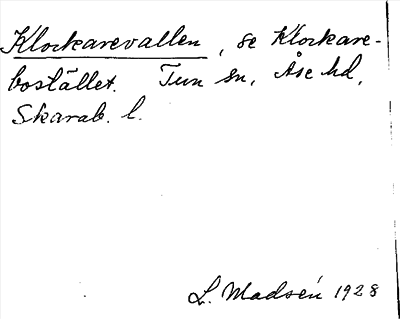 Klockarevallen, se Klockare-
bostället. Tun sn, Åse hd,
Skarab. l.
L. Madsén 1928